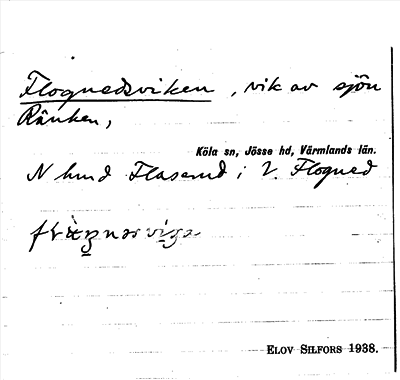 Flognedsviken, vik av sjön
Ränken,
Köla sn, Jösse hd, Värmlands län.
N lund Flaserud i V. Flogned
ELOV SILFORS 1938.